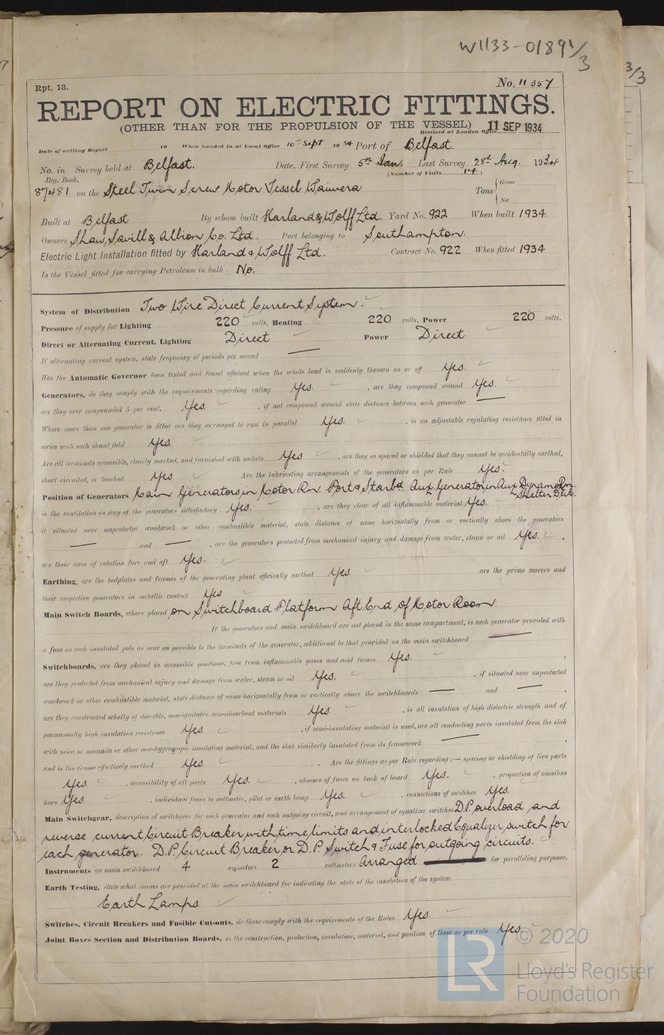 W1133-0189 1/3
3/3
Rpt. 13.
No. 11357
REPORT ON ELECTRIC FITTINGS.
(OTHER THAN FOR THE PROPULSION OF THE VESSEL)
Received at London Office 11 SEP 1934
Date of writing Report 19 When handed in at Local Office 10th Sept 19 34 Port of Belfast.
No. in Survey held at Belfast. Date, First Survey 5th Jan. Last Survey 28th Aug. 1934
Reg. Book. (Number of Visits
87481 on the Steel Twin Screw Motor Vessel Waiwera Tons { Gross
Net
Built at Belfast By whom built Harland & Wolff Ltd. Yard No. 922 When built 1934
Owners Shaw, Savill & Albion Co. Ltd. Port belonging to Southampton
Electric Light Installation fitted by Harland & Wolff Ltd. Contract No. 922 When fitted 1934
Is the Vessel fitted for carrying Petroleum in bulk No.
System of Distribution Two Wire Direct Current System.
Pressure of supply for Lighting 220 volts, Heating 220 volts, Power 220 volts.
Direct or Alternating Current, Lighting Direct Power Direct
If alternating current system, state frequency of periods per second —
Has the Automatic Governor been tested and found efficient when the whole load is suddenly thrown on or off Yes.
Generators, do they comply with the requirements regarding rating Yes. , are they compound wound Yes.
are they over compounded 5 per cent. Yes. , if not compound wound state distance between each generator —
Where more than one generator is fitted are they arranged to run in parallel Yes. , is an adjustable regulating resistance fitted in
series with each shunt field Yes.
Are all terminals accessible, clearly marked, and furnished with sockets Yes , are they so spaced or shielded that they cannot be accidentally earthed,
short circuited, or touched Yes Are the lubricating arrangements of the generators as per Rule Yes.
Position of Generators Main Generators in Motor Rm Port & Starbd. Aux Generator in Aux Dynamo Rm. Shelter Deck.
is the ventilation in way of the generators satisfactory Yes. , are they clear of all inflammable material Yes.
if situated near unprotected woodwork or other combustible material, state distance of same horizontally from or vertically above the generators
— and — , are the generators protected from mechanical injury and damage from water, steam or oil Yes.
are their axes of rotation fore and aft Yes.
Earthing, are the bedplates and frames of the generating plant efficiently earthed Yes are the prime movers and
their respective generators in metallic contact Yes
Main Switch Boards, where placed on Switchboard Platform Aft End of Motor Room
If the generators and main switchboard are not placed in the same compartment, is each generator provided with
a fuse on each insulated pole as near as possible to the terminals of the generator, additional to that provided on the main switchboard —
Switchboards, are they placed in accessible positions, free from inflammable gases and acid fumes Yes.
are they protected from mechanical injury and damage from water, steam or oil Yes. , if situated near unprotected
woodwork or other combustible material, state distance of same horizontally from or vertically above the switchboards — and — ,
are they constructed wholly of durable, non-ignitable non-absorbent materials Yes , is all insulation of high dielectric strength and of
permanently high insulation resistance Yes , if semi-insulating material is used, are all conducting parts insulated from the slab
with mica or micanite or other non-hygroscopic insulating material, and the slab similarly insulated from its framework —
and is the frame effectively earthed Yes Are the fittings as per Rule regarding :— spacing or shielding of live parts
Yes. , accessibility of all parts Yes. , absence of fuses on back of board Yes. , proportion of omnibus
bars Yes. , individual fuses to voltmeter, pilot or earth lamp Yes. , connections of switches Yes.
Main Switchgear, description of switchgear for each generator and each outgoing circuit, and arrangement of equaliser switches D.P. overload and
reverse current Circuit Breaker with time limits and interlocked Equalizer switch for
each generator. D.P. Circuit Breaker or D.P. Switch & Fuse for outgoing circuits.
Instruments on main switchboard 4 ammeters 2 voltmeters Arranged for paralleling purposes.
Earth Testing, state what means are provided at the main switchboard for indicating the state of the insulation of the system
Earth Lamps
Switches, Circuit Breakers and Fusible Cut-outs, do these comply with the requirements of the Rules Yes.
Joint Boxes Section and Distribution Boards, is the construction, protection, insulation, material, and position of these as per rule Yes.
LR
© 2020
Lloyd's Register
Foundation